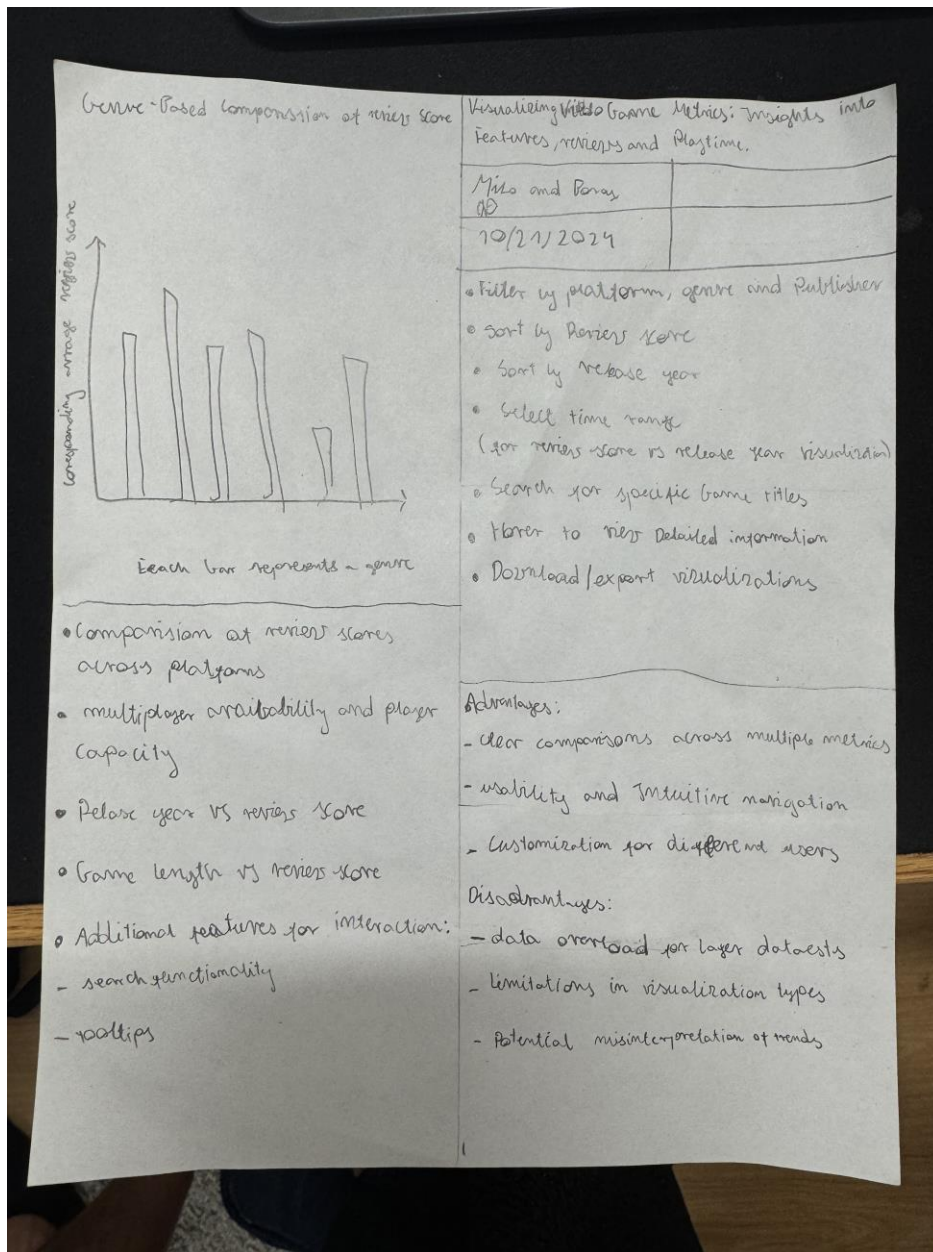 Genre-Based Comparission of review score
corresponding average review score
Eeach bar represents a genre
• Comparision of review scores
across platforms
• multiplayer availability and player
capacity
• Relase year vs review score
• Game length vs review score
• Additional features for interaction:
- search functionality
- tooltips
Visualizing Video Game Metrics: Insights into
Features, reviews and Playtime.
and
10/21/2024
• Filter by platform, genre and Publisher
• Sort by Review score
• Sort by release year
• Select time range
(for review score vs release year visualization)
• Search for specific Game titles
• Hover to view Detailed information
• Download/export vizualizations
Advantages:
- clear comparisons across multiple metrics
- usability and Intuitive navigation
- Customization for different users
Disadvantages:
- data overload for layer dataests
- limitations in visualization types
- Potential misinterprelation of trends